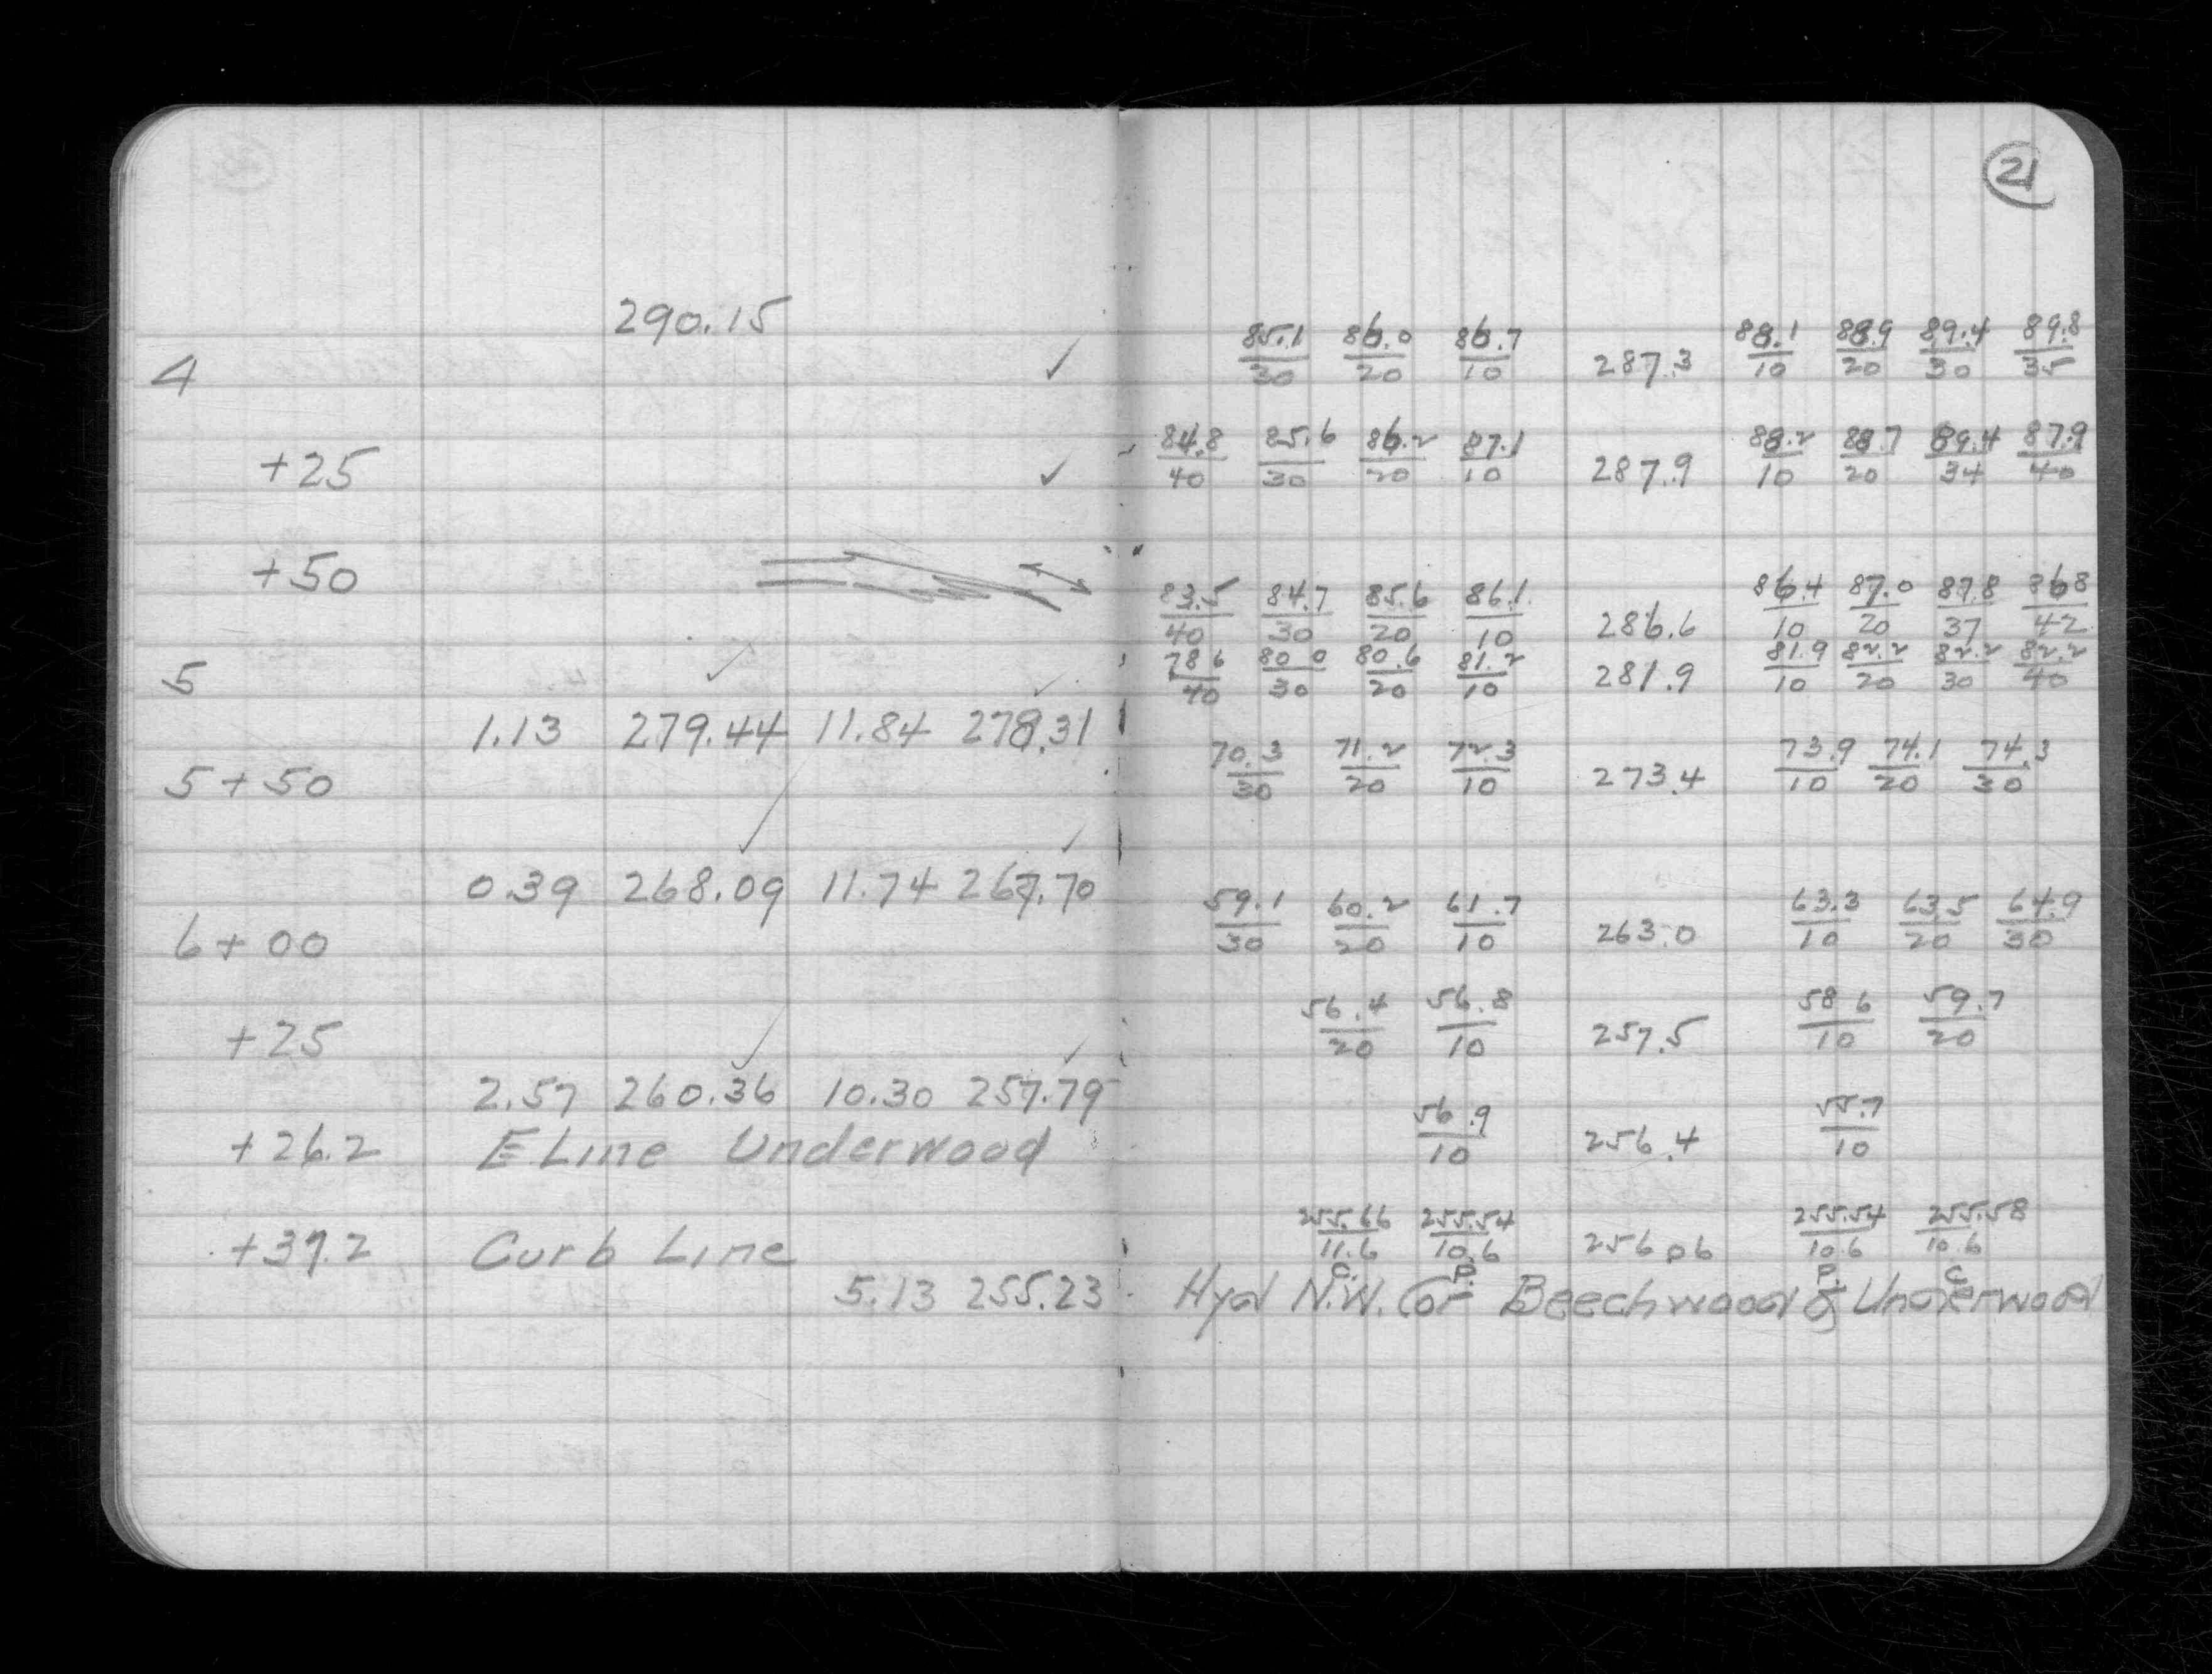 21
290.15
85.1 86.0 86.7 88.1 88.9 89.4 89.8
4 ✓ 30 20 10 287.3 10 20 30 35
84.8 85.6 86.2 87.1 88.2 88.7 89.4 87.9
+25 ✓ 40 30 20 10 287.9 10 20 34 40
+50
83.5 84.7 85.6 86.1 86.4 87.0 87.8 86.8
40 30 20 10 286.6 10 20 37 42
78.6 80.0 80.6 81.2 81.9 82.2 82.2 82.2
5 40 30 20 10 281.9 10 20 30 40
1.13 279.44 11.84 278.31
70.3 71.2 72.3 73.9 74.1 74.3
5+50 30 20 10 273.4 10 20 30
0.39 268.09 11.74 267.70
59.1 60.2 61.7 63.3 63.5 64.9
6+00 30 20 10 263.0 10 20 30
56.4 56.8 58.6 59.7
+25 20 10 257.5 10 20
2.57 260.36 10.30 257.79
56.9 55.7
+26.2 E Line Underwood 10 256.4 10
255.66 255.54 255.54 255.58
+37.2 Curb Line 11.6 10.6 256.06 10.6 10.6
C. P. P. C
5.13 255.23 Hyd N.W. Cor Beechwood & Underwood